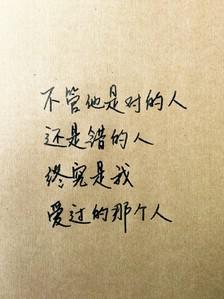 不管他是对的人
还是错的人
终究是我
爱过的那个人